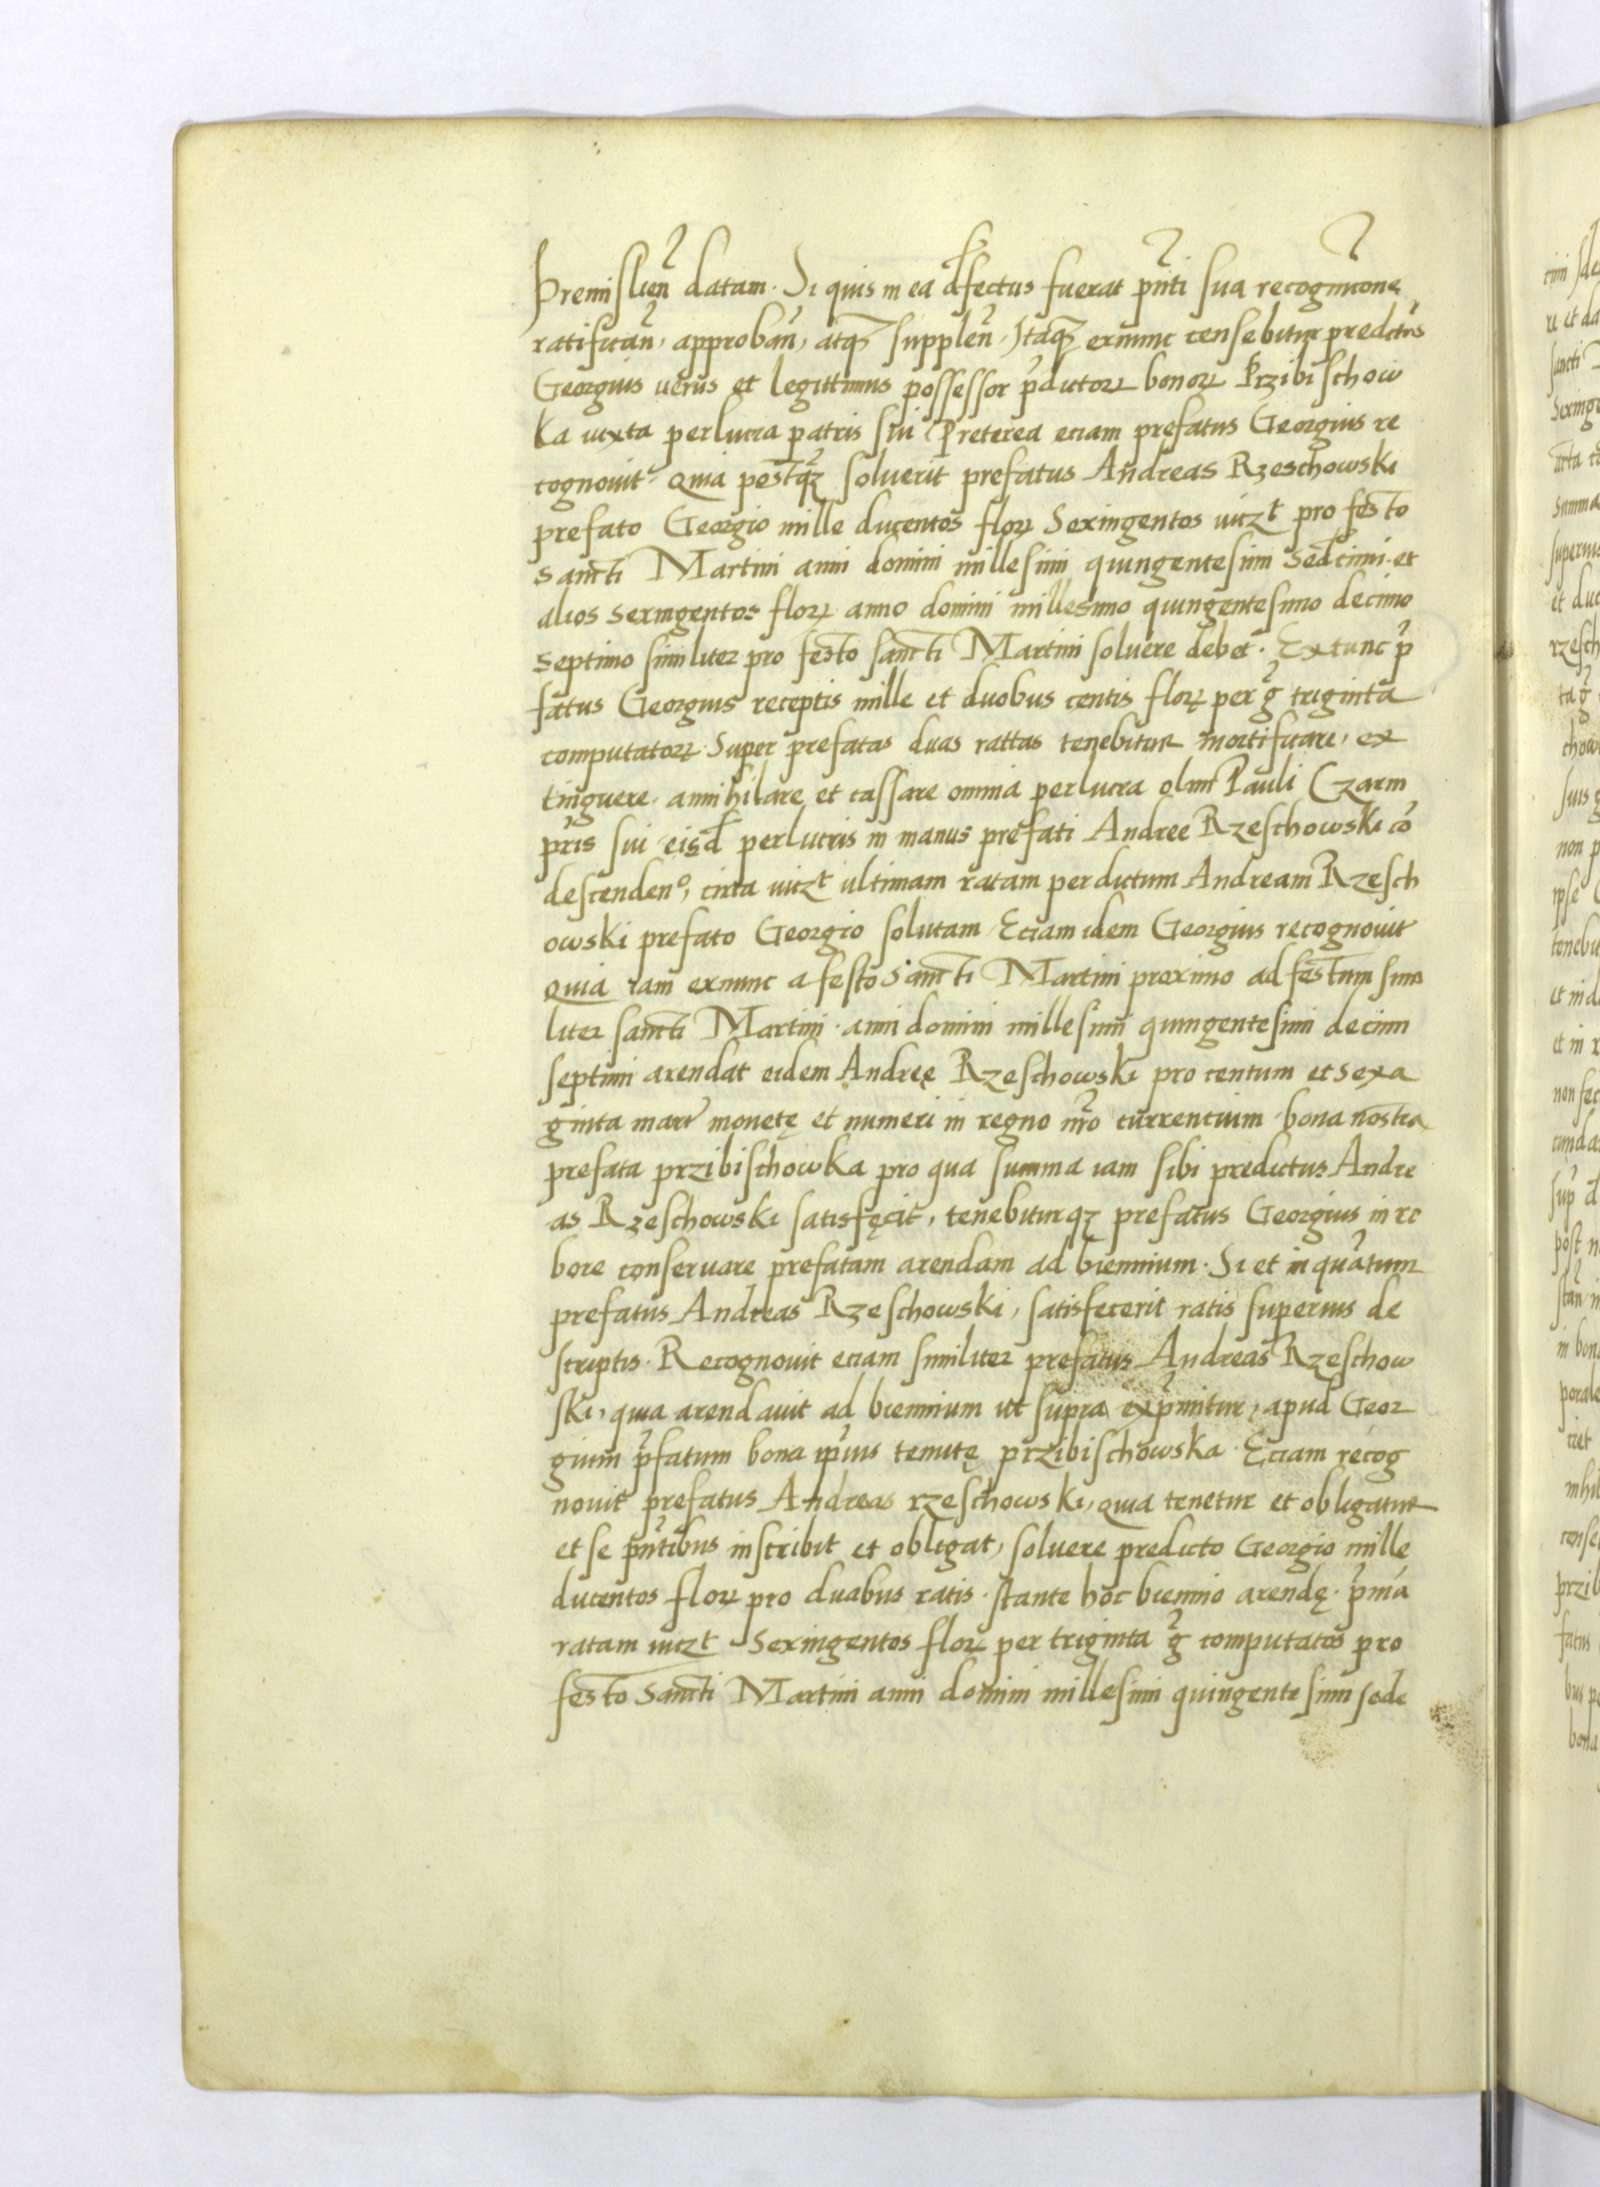 Premislien̄ datam. Si quis in ea defectus fuerat p̄nti sua recognicōne
ratifican̄, approban̄, atq₃ supplen̄. Itaq₃ exnunc censebitur predictus
Georgius uerus et legittimus possessor p̄dictoꝝ bonoꝝ Przibischow
ka iuxta perlucra patris sui Preterea eciam prefatus Georgius re
cognouit quia postq₃ soluerit prefatus Andreas Rzeschowski
prefato Georgio mille ducentos floꝝ Sexingentos uicz̄t pro festo
sancti Martini anni domini millesimi quingentesimi sedecimi. et
alios sexingentos floꝝ anno domini millesimo quingentesimo decimo
septimo similiter pro festo sancti Martini soluere debet. Extunc p̄
fatus Georgius receptis mille et duobus centis floꝝ per g̃ triginta
computatoꝝ Super prefatas duas rattas tenebitur mortificare, ex
tinguere, annihilare et cassare omnia perlucra olim Pauli Czarni
p̄ris sui eisd̄ perlucris in manus prefati Andree Rzeschowski cō
descenden̄, circa uicz̄t ultimam ratam per dictum Andream Rzesch
owski prefato Georgio solutam Eciam idem Georgius recognouit
quia iam exnunc a festo Sancti Martini proximo ad festum simi
liter sancti Martini anni domini millesimi quingentesimi decimi
septimi arendat eidem Andreę Rzeschowski pro centum et sexa
ginta marc̄ monetę et numeri in regno nr̄o currentium bona nostra
prefata przibischowka pro qua summa iam sibi predictus Andre
as Rzeschowski satisfęcit, tenebiturq₃ prefatus Georgius in ro
bore conseruare prefatam arendam ad biennium. Si et in quātum
prefatus Andreas Rzeschowski, satisfecerit ratis superius de
scriptis. Recognouit eciam similiter prefatus Andreas Rzeschow
ski, quia arendauit ad biennium ut supra exp̄mitur, apud Geor
gium p̄fatum bona ip̄ius tenutę przibischowska. Eciam recog
nouit prefatus Andreas rzeschowski, quia tenetur et obligatur
et se p̄ntibus inscribit et obligat, soluere predicto Georgio mille
ducentos floꝝ pro duabus ratis. stante hoc biennio arendę. p̄mā
ratam uicz̄t Sexingentos floꝝ per triginta g̃ computatos pro
festo Sancti Martini anni domini millesimi quingentesimi sede